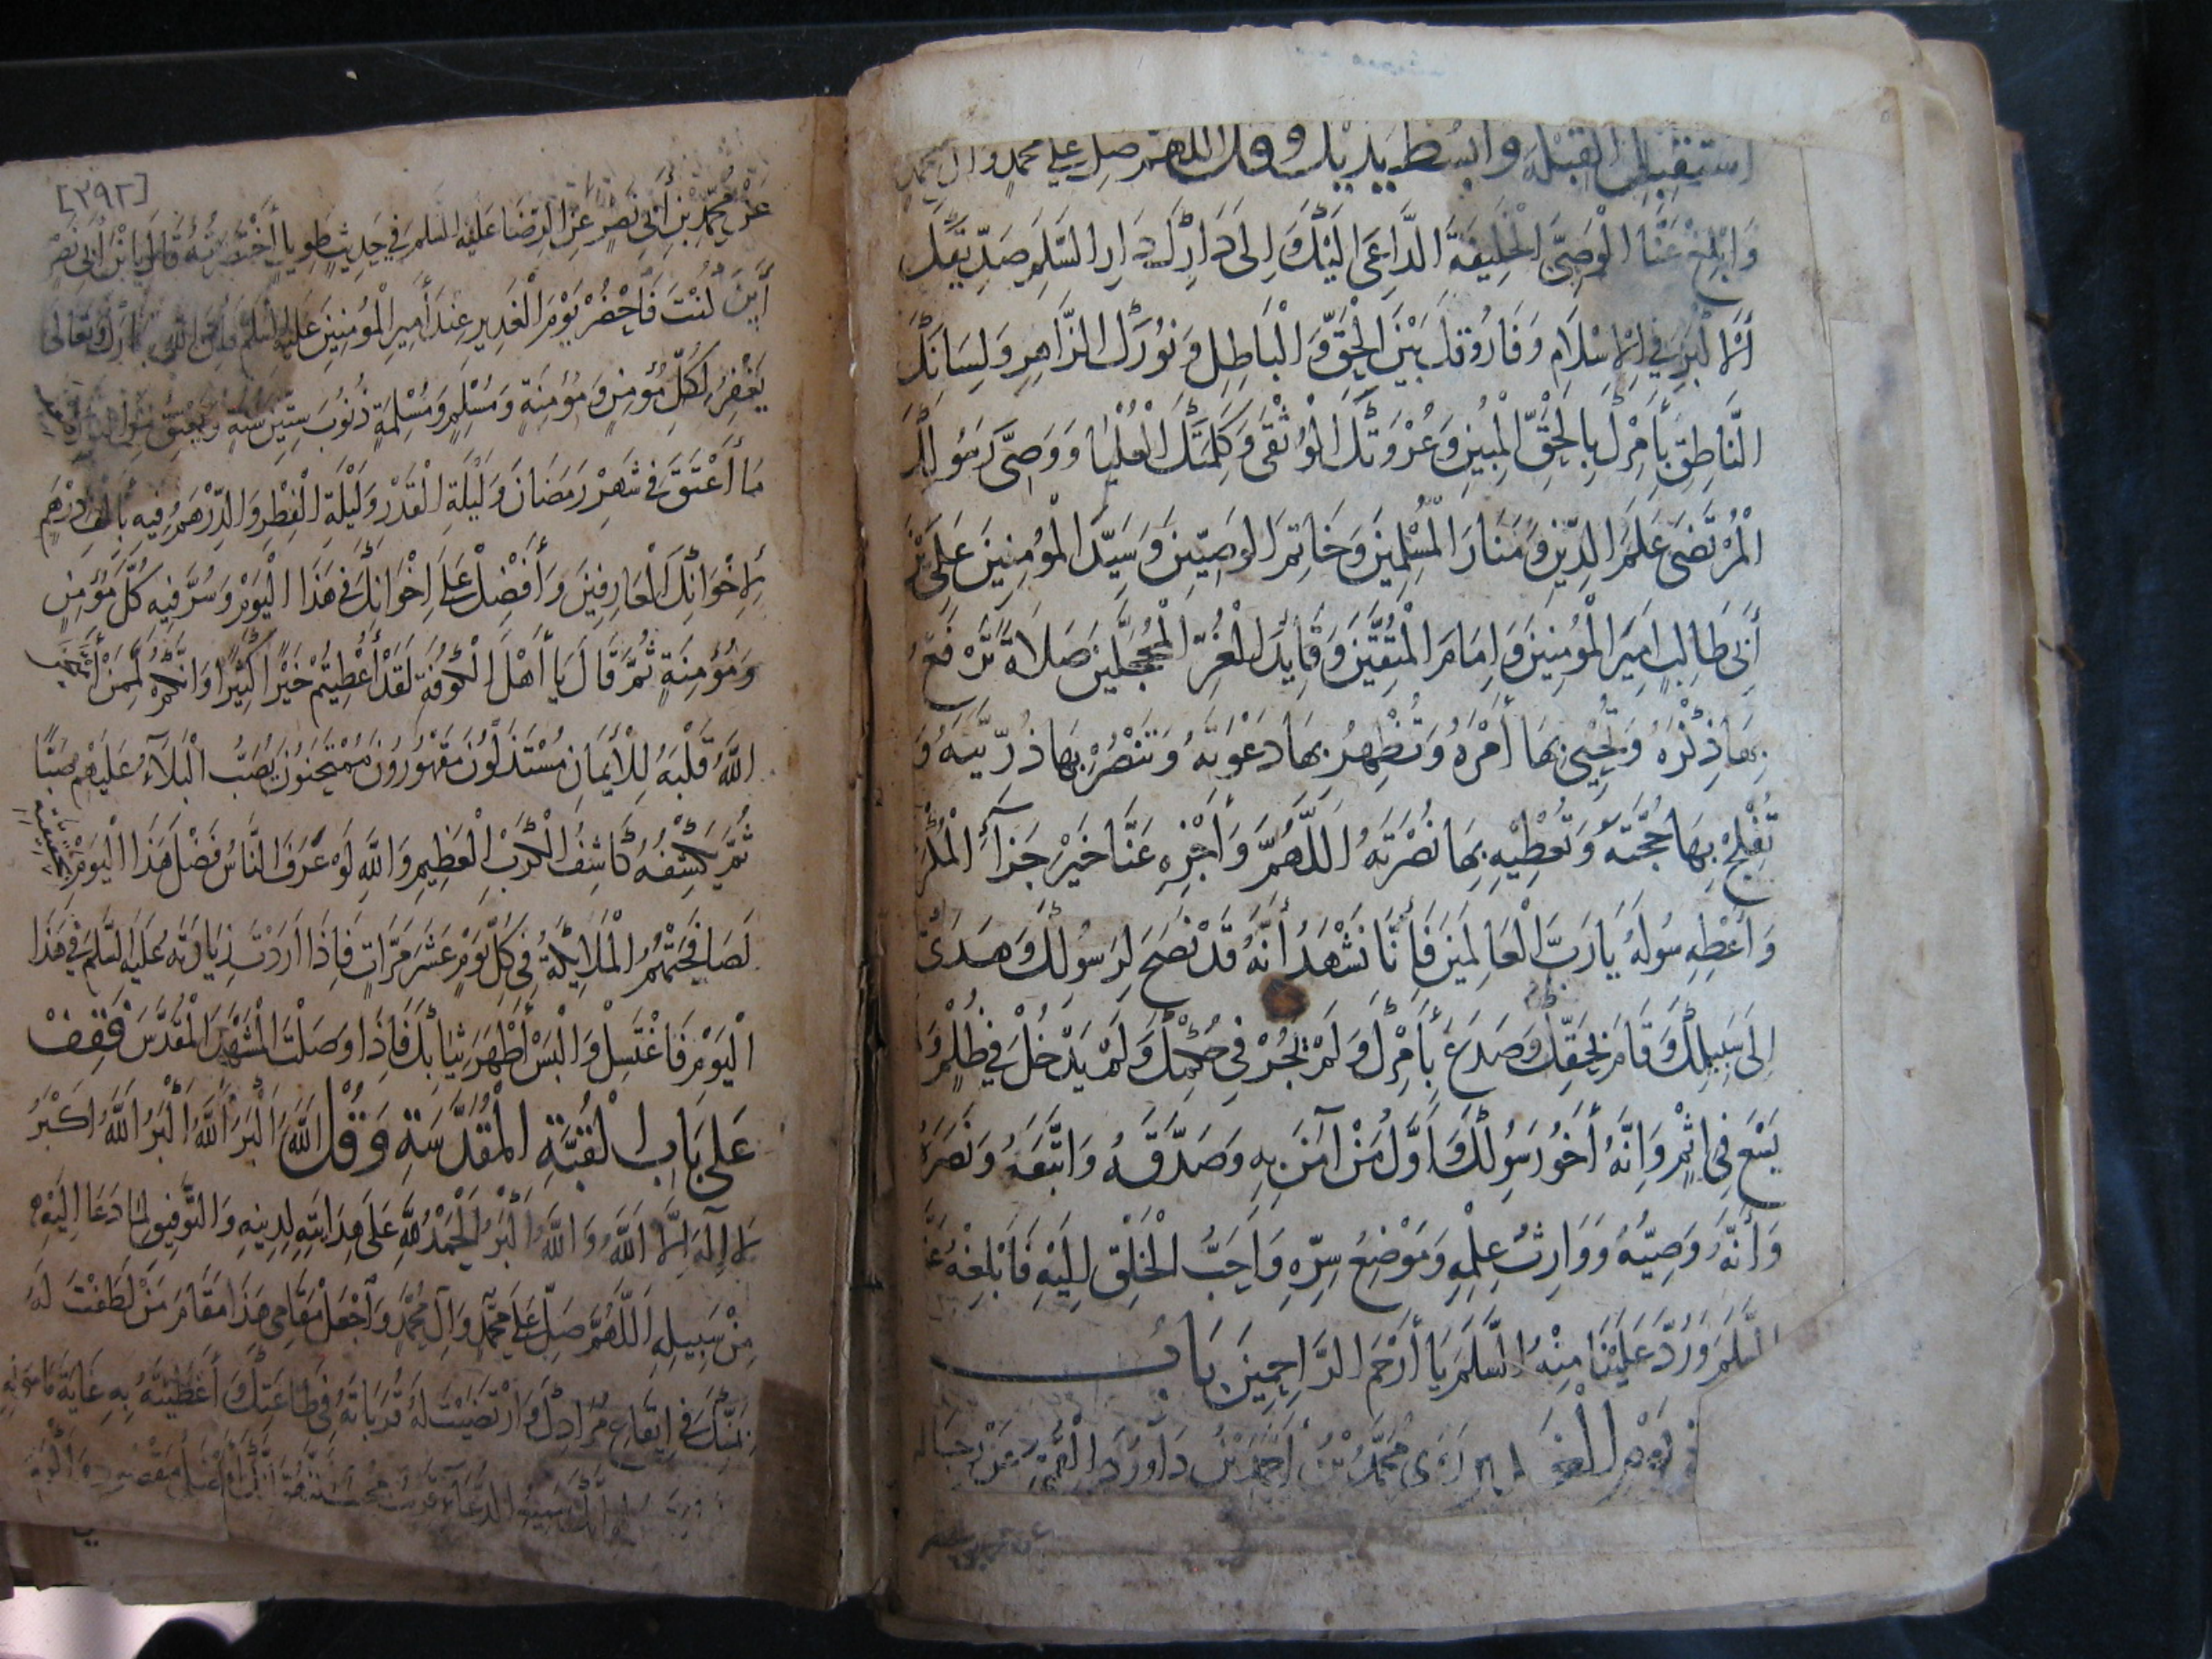 استقبل القبلة وابسط يديك وقل اللهم صل على محمد وآل محمد
وَابْلِغْ عَنَّا الْوَصِيَّ الْخَلِيفَةَ الدَّاعِيَ اِلَيْكَ وَ اِلى دَارِكَ دَارِ السَّلمِ صِدِّيقَكَ
الْأَكْبَرَ فِي الْاِسْلَامِ وَفَارُوقَكَ بَيْنَ الْحَقِّ وَ الْبَاطِلِ وَ نُورَكَ الزَّاهِرِ وَلِسَانَكَ
النَّاطِقَ بِأَمْرِكَ بِالْحَقِّ الْمُبِينِ وَعُرْوَتَكَ الْوُثْقَى وَكَلِمَتَكَ الْعُلْيَا وَوَصِيَّ رَسُولِكَ
الْمُرْتَضَى عَلَمَ الدِّينِ وَمَنَارَ الْمُسْلِمِينَ وَخَاتِمَ الوَصِيِّينَ وَسَيِّدَ الْمُؤْمِنِينَ عَلِيَّ بْنَ
أَبِي طَالِبٍ اَمِيرَ الْمُؤْمِنِينَ وَاِمَامَ الْمُتَّقِينَ وَقَايِدَ الْغُرِّ الْمُحَجَّلِينَ صَلَاةً تَرْفَعُ
بِهَا ذِكْرَهُ وَتُحْيِي بِهَا أَمْرَهُ وَتُظْهِرُ بِهَا دَعْوَتَهُ وَتَنْصُرُ بِهَا ذُرِّيَّتَهُ وَ
تُفْلِجُ بِهَا حُجَّتَهُ وَتُعْطِيْهِ بِهَا نُصْرَتَهُ اَللَّهُمَّ وَأَجْزِهِ عَنَّا خَيْرَ جَزَآءِ الْمُكْرَمِينَ
وَأَعْطِهِ سُولَهُ يَارَبَّ الْعَالَمِينَ فَأِنَّا نَشْهَدُ أَنَّهُ قَدْ نَصَحَ لِرَسُولِكَ وَهَدَى
اِلَى سَبِيلِكَ وَقَامَ بِحَقِّكَ وَصَدَعَ بِأَمْرِكَ وَلَمْ يَجُرْ فِي حُكْمِكَ وَلَمْ يَدْخُلْ فِي ظُلْمٍ وَلَمْ
يَسْعَ فِي اِثْمٍ وَاِنَّهُ أَخُو رَسُولِكَ وَاَوَّلُ مَنْ آمَنَ بِهِ وَصَدَّقَهُ وَاتَّبَعَهُ وَنَصَرَهُ
وَأَنَّهُ وَصِيُّهُ وَوَارِثُ عِلْمِهِ وَمَوْضِعُ سِرِّهِ وَاَحَبُّ الْخَلْقِ اِلَيْهِ فَابْلِغْهُ عَنَّا
السَّلمَ وَرُدَّ عَلَيْنَا مِنْهُ السَّلمَ يَا أَرْحَمَ الرَّاحِمِينَ بَابُ
يَوْمِ الْغَدِيرِ رَوَى مُحَمَّدُ بْنُ أَحْمَدَ بْنِ دَاوُدَ الْقُمِّيُّ عَنْ رِجَالِهِ
[٣٩٢]
عَنْ مُحَمَّدِ بْنِ أَبِي نَصْرٍ عَنِ الرِّضَا عَلَيْهِ السَّلم فِي حَدِيثٍ طَوِيلٍ أَخْتَصَرْتُهُ قَالَ يَا بْنَ أَبِي نَصْرٍ
أَيْنَ كُنْتَ فَاحْضُرْ يَوْمَ الْغَدِيرِ عِنْدَ أَمِيرِ الْمُؤْمِنِينَ عَلَيْهِ السَّلمُ فَاِنَّ اللَّهَ تَبَارَكَ وَتَعَالى
يَغْفِرُ لِكُلِّ مُؤْمِنٍ وَمُؤْمِنَةٍ وَمُسْلِمٍ وَمُسْلِمَةٍ ذُنُوبَ سِتِّينَ سَنَةٍ وَيُعْتِقُ مِنَ النَّارِ ضِعْفَ
مَا أَعْتَقَ فِي شَهْرِ رَمَضَانَ وَلَيْلَةِ الْقَدْرِ وَلَيْلَةِ الْفِطْرِ وَالدِّرْهَمُ فِيهِ بِأَلْفِ دِرْهَمٍ
لِاِخْوَانِكَ الْعَارِفِينَ وَأَفْضِلْ عَلَى اِخْوَانِكَ فِي هَذَا الْيَوْمِ وَسُرَّ فِيهِ كُلَّ مُؤْمِنٍ
وَمُؤْمِنَةٍ ثُمَّ قَالَ يَا أَهْلَ الْكُوفَةِ لَقَدْ أُعْطِيتُمْ خَيْرًا كَثِيرًا وَاِنَّكُمْ لَمِمَّنْ أَمْتَحَنَ
اللَّهُ قَلْبَهُ لِلْأِيمَانِ مُسْتَذَلُّونَ مَقْهُورُونَ مُمْتَحَنُونَ يُصَبُّ الْبَلَآءُ عَلَيْهِمْ صَبًّا
ثُمَّ يَكْشِفُهُ كَاشِفُ الْكَرْبِ الْعَظِيمِ وَاللَّهِ لَوْ عَرَفَ النَّاسُ فَضْلَ هَذَا الْيَوْمِ بِحَقِيقَتِهِ
لَصَافَحَتْهُمُ الْمَلَايِكَةُ فِي كُلِّ يَوْمٍ عَشَرَ مَرَّاتٍ فَاِذَا اَرَدْتَ زِيَارَتَهُ عَلَيْهِ السَّلمُ فِي هَذَا
الْيَوْمِ فَاغْتَسِلْ وَالْبَسْ أَطْهَرَ ثِيَابِكَ فَاِذَا وَصَلْتَ الْمَشْهَدَ الْمُقَدَّسَ فَقِفْ
عَلَى بَابِ الْقُبَّةِ الْمُقَدَّسَةِ وَقُلْ اَللَّهُ اَكْبَرُ اَللَّهُ اَكْبَرُ اَللَّهُ اَكْبَرُ
لَا اِلَهَ اِلَّا اللَّهُ وَاللَّهُ اَكْبَرُ الْحَمْدُ لِلَّهِ عَلَى هِدَايَتِهِ لِدِينِهِ وَالتَّوْفِيقِ لِمَا دَعَا اِلَيْهِ
مِنْ سَبِيلِهِ اَللَّهُمَّ صَلِّ عَلَى مُحَمَّدٍ وَآلِ مُحَمَّدٍ وَاجْعَلْ مَقَامِي هَذَا مَقَامَ مَنْ لَطَفْتَ لَهُ
بِمَنِّكَ فِي اِيقَاعِ مُرَادِكَ وَارْتَضَيْتَ لَهُ قُرُبَاتَهُ فِي طَاعَتِكَ وَأَعْطَيْتَهُ بِهِ غَايَةَ مَامُولِهِ